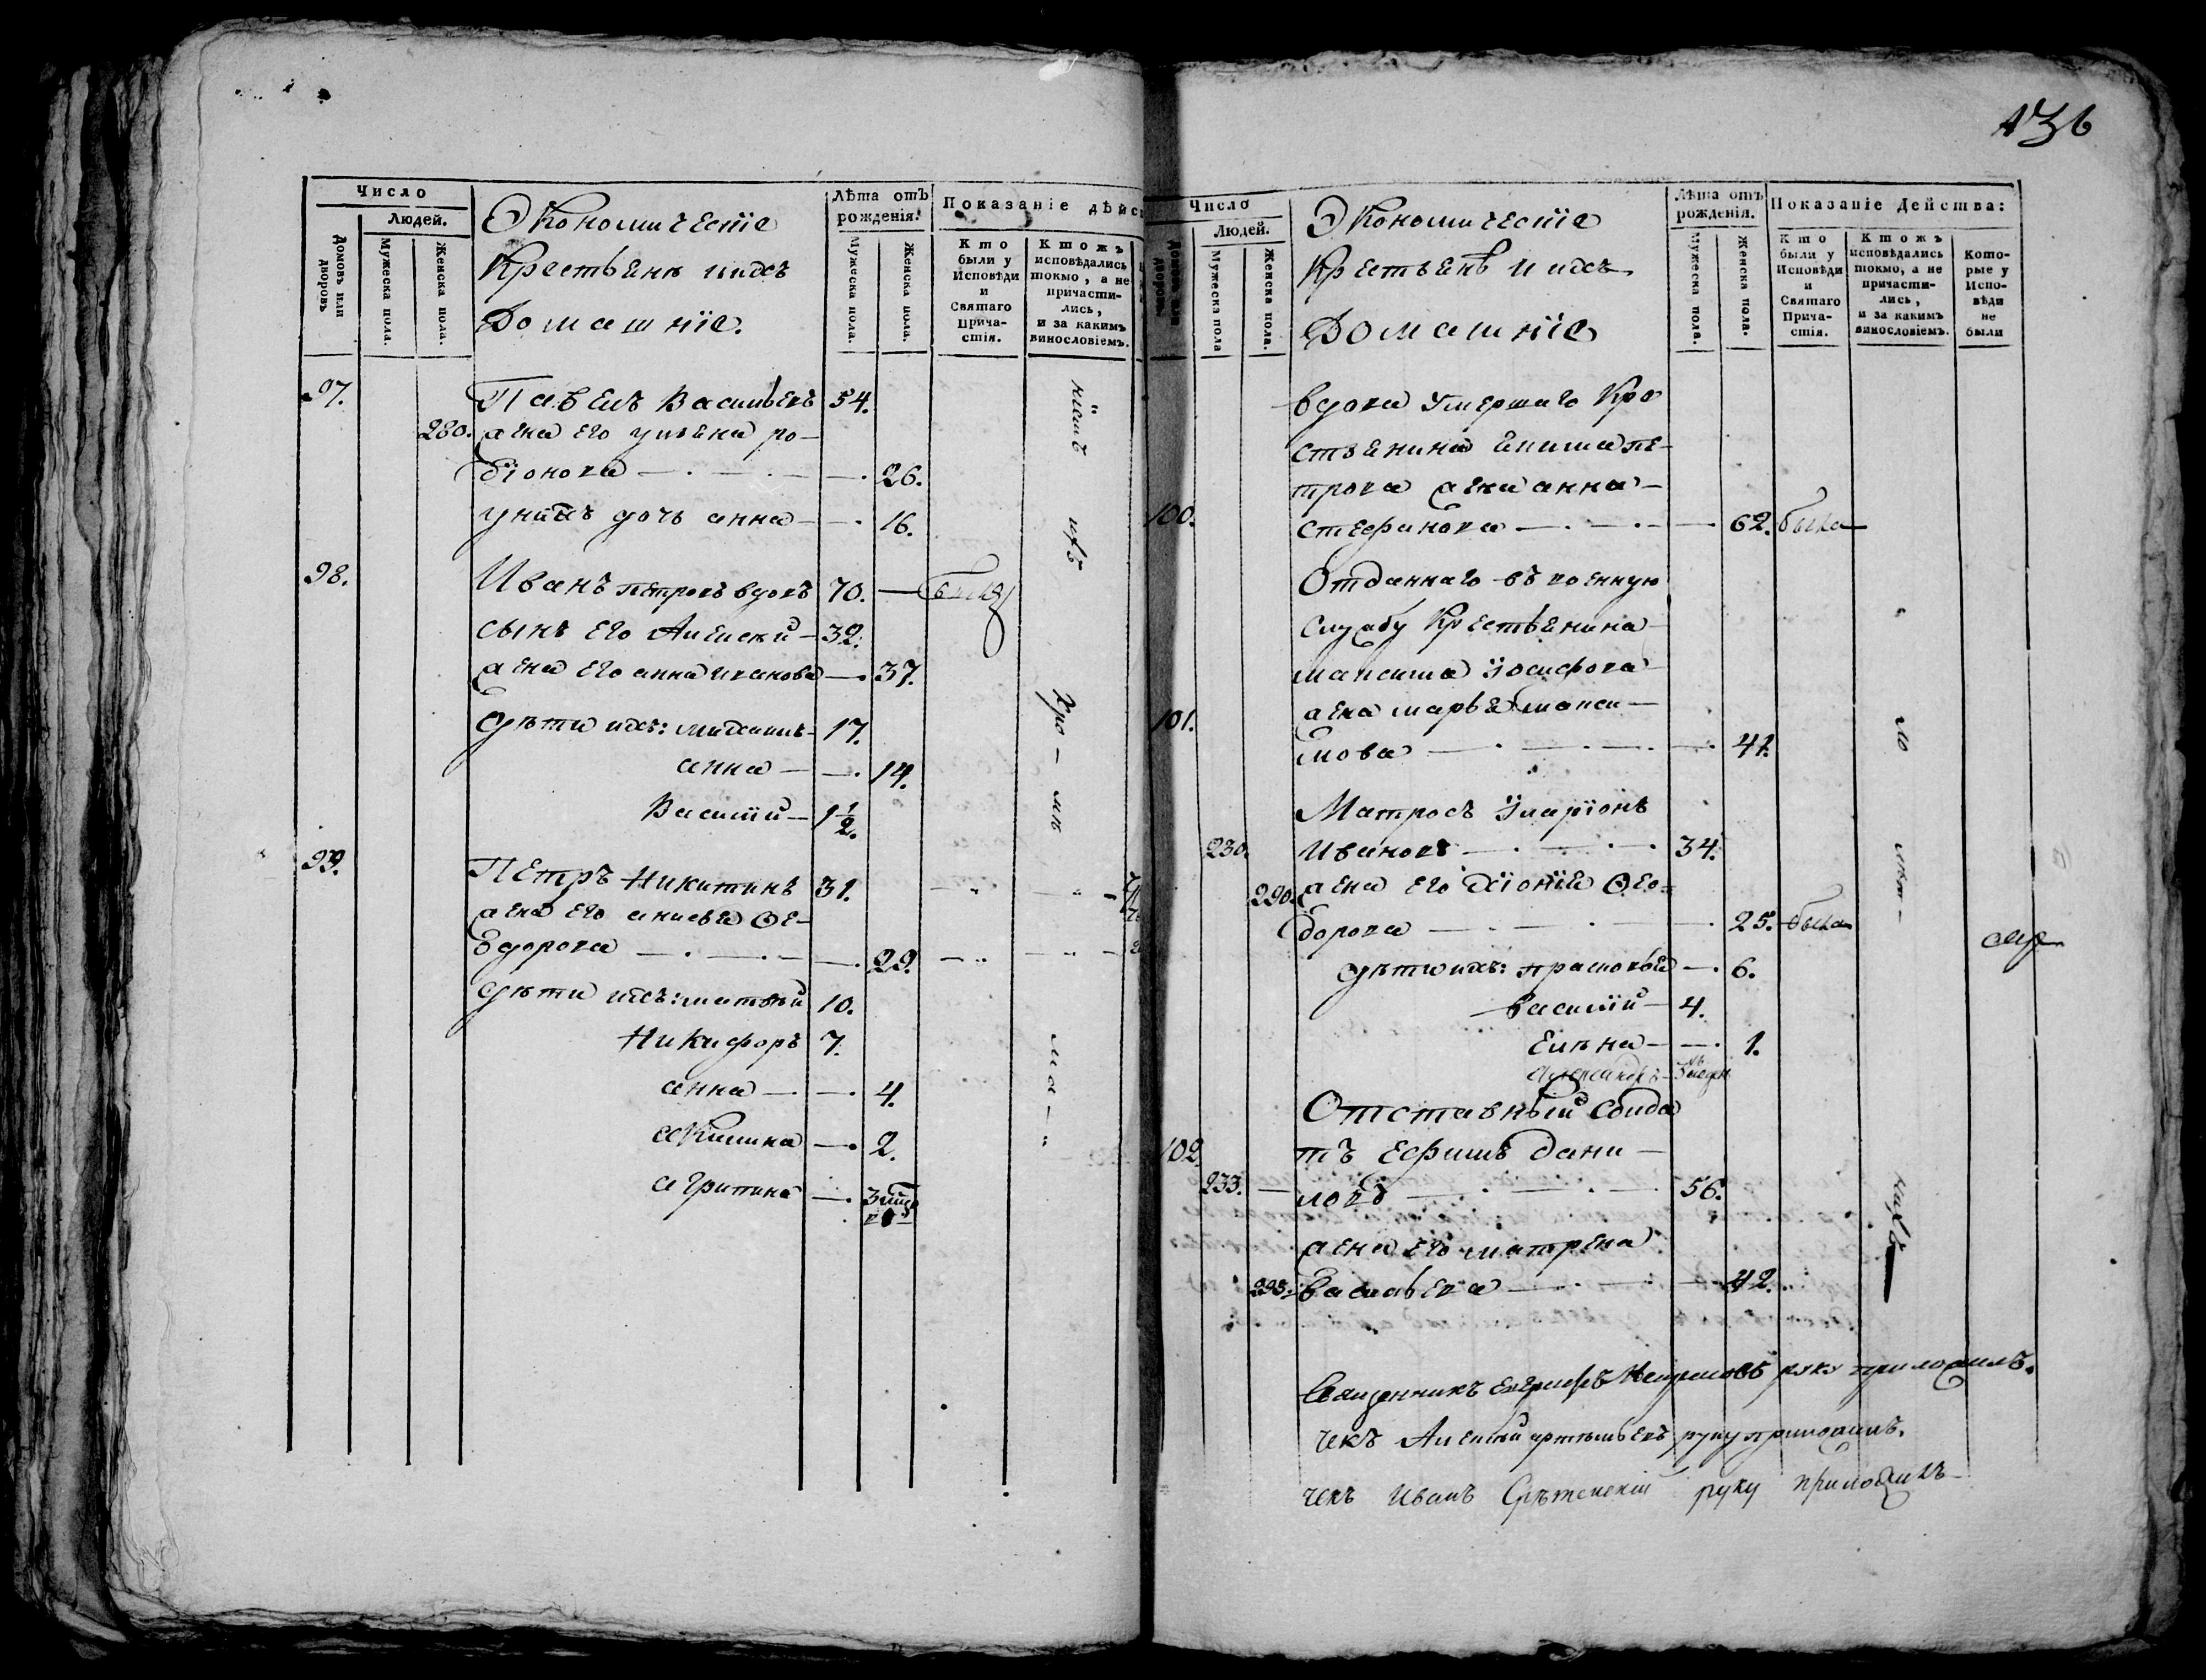 Число
Людей.
Домовъ или дворовъ
Мужеска пола.
Женска пола.
Экономическіе
Крестьянѣ ииxъ
Домашніе.
Лѣта отъ рожденія.
Мужеска пола.
Женска пола.
Показаніе дѣйс
Кто были у Исповѣди и Святаго Причастія.
Ктожъ исповѣдались токмо, а не причастились, и за какимъ винословіемъ.
97.
Павелъ Васильевъ 54.
280. жена его ульяна ро-
діонова — 26.
унихъ дочь анна — 16.
98.
Иванъ петровъ вдовъ 70. —
сынъ его Алексѣй — 32.
жена его анна иванова — 37.
дѣти ихъ: михаилъ — 17.
анна — 14.
Василій — 1 1/2.
99.
Петръ Никитинъ 31.
жена его анисья Ѳе-
одорова — 29.
дѣти ихъ: матвѣй 10.
Никифоръ 7.
анна — 4.
акилина — 2.
агрипина —
136
Число
Людей.
Домовъ или дворовъ.
Мужеска пола
Женска пола.
Экономическіе
Крестьянѣ и ихъ
Домашніе
Лѣта отъ рожденія.
Мужеска пола.
Женска пола.
Показаніе Действа:
Кто были у Исповѣди и Святаго Причастія.
Ктожъ исповѣдались токмо, а не причастились, и за какимъ винословіемъ.
Которые у Исповѣди не были
вдова умершаго Кре
стьянина акима пе-
трова жена анна
100. стефанова — 62. была
Отданнаго въ военную
службу Крестьянина
максима іосифова
101. жена марья макси-
мова — 41.
Матросъ іларіонъ
230. Ивановъ — 34.
290. жена его хіонія Ѳео-
дорова — 25. была
дѣти ихъ: прасковья — 6.
василій — 4.
Елѣна — 1.
александръ —
Отставный Солда
102. тъ Ефимъ Дани-
233. — ловъ — 56.
жена его матрена
Васильева — 42.
Священникъ руку приложилъ.
чекъ Алексѣй артемьевъ руку приложилъ.
чекъ Иванъ Срѣтенскій руку приложилъ